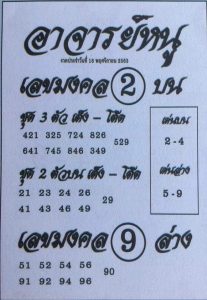 อาจารย์หนู
งวดประจำวันที่ 16 พฤศจิกายน 2565
เลขมงคล 2 บน
ชุด 3 ตัว เต็ง - โต๊ด
421 325 724 826
529
641 745 846 349
เด่นบน
2 - 4
ชุด 2 ตัวบน เต็ง - โต๊ด
21 23 24 26
29
41 43 46 49
เด่นล่าง
5 - 9
เลขมงคล 9 ล่าง
51 52 54 56
90
91 92 94 96